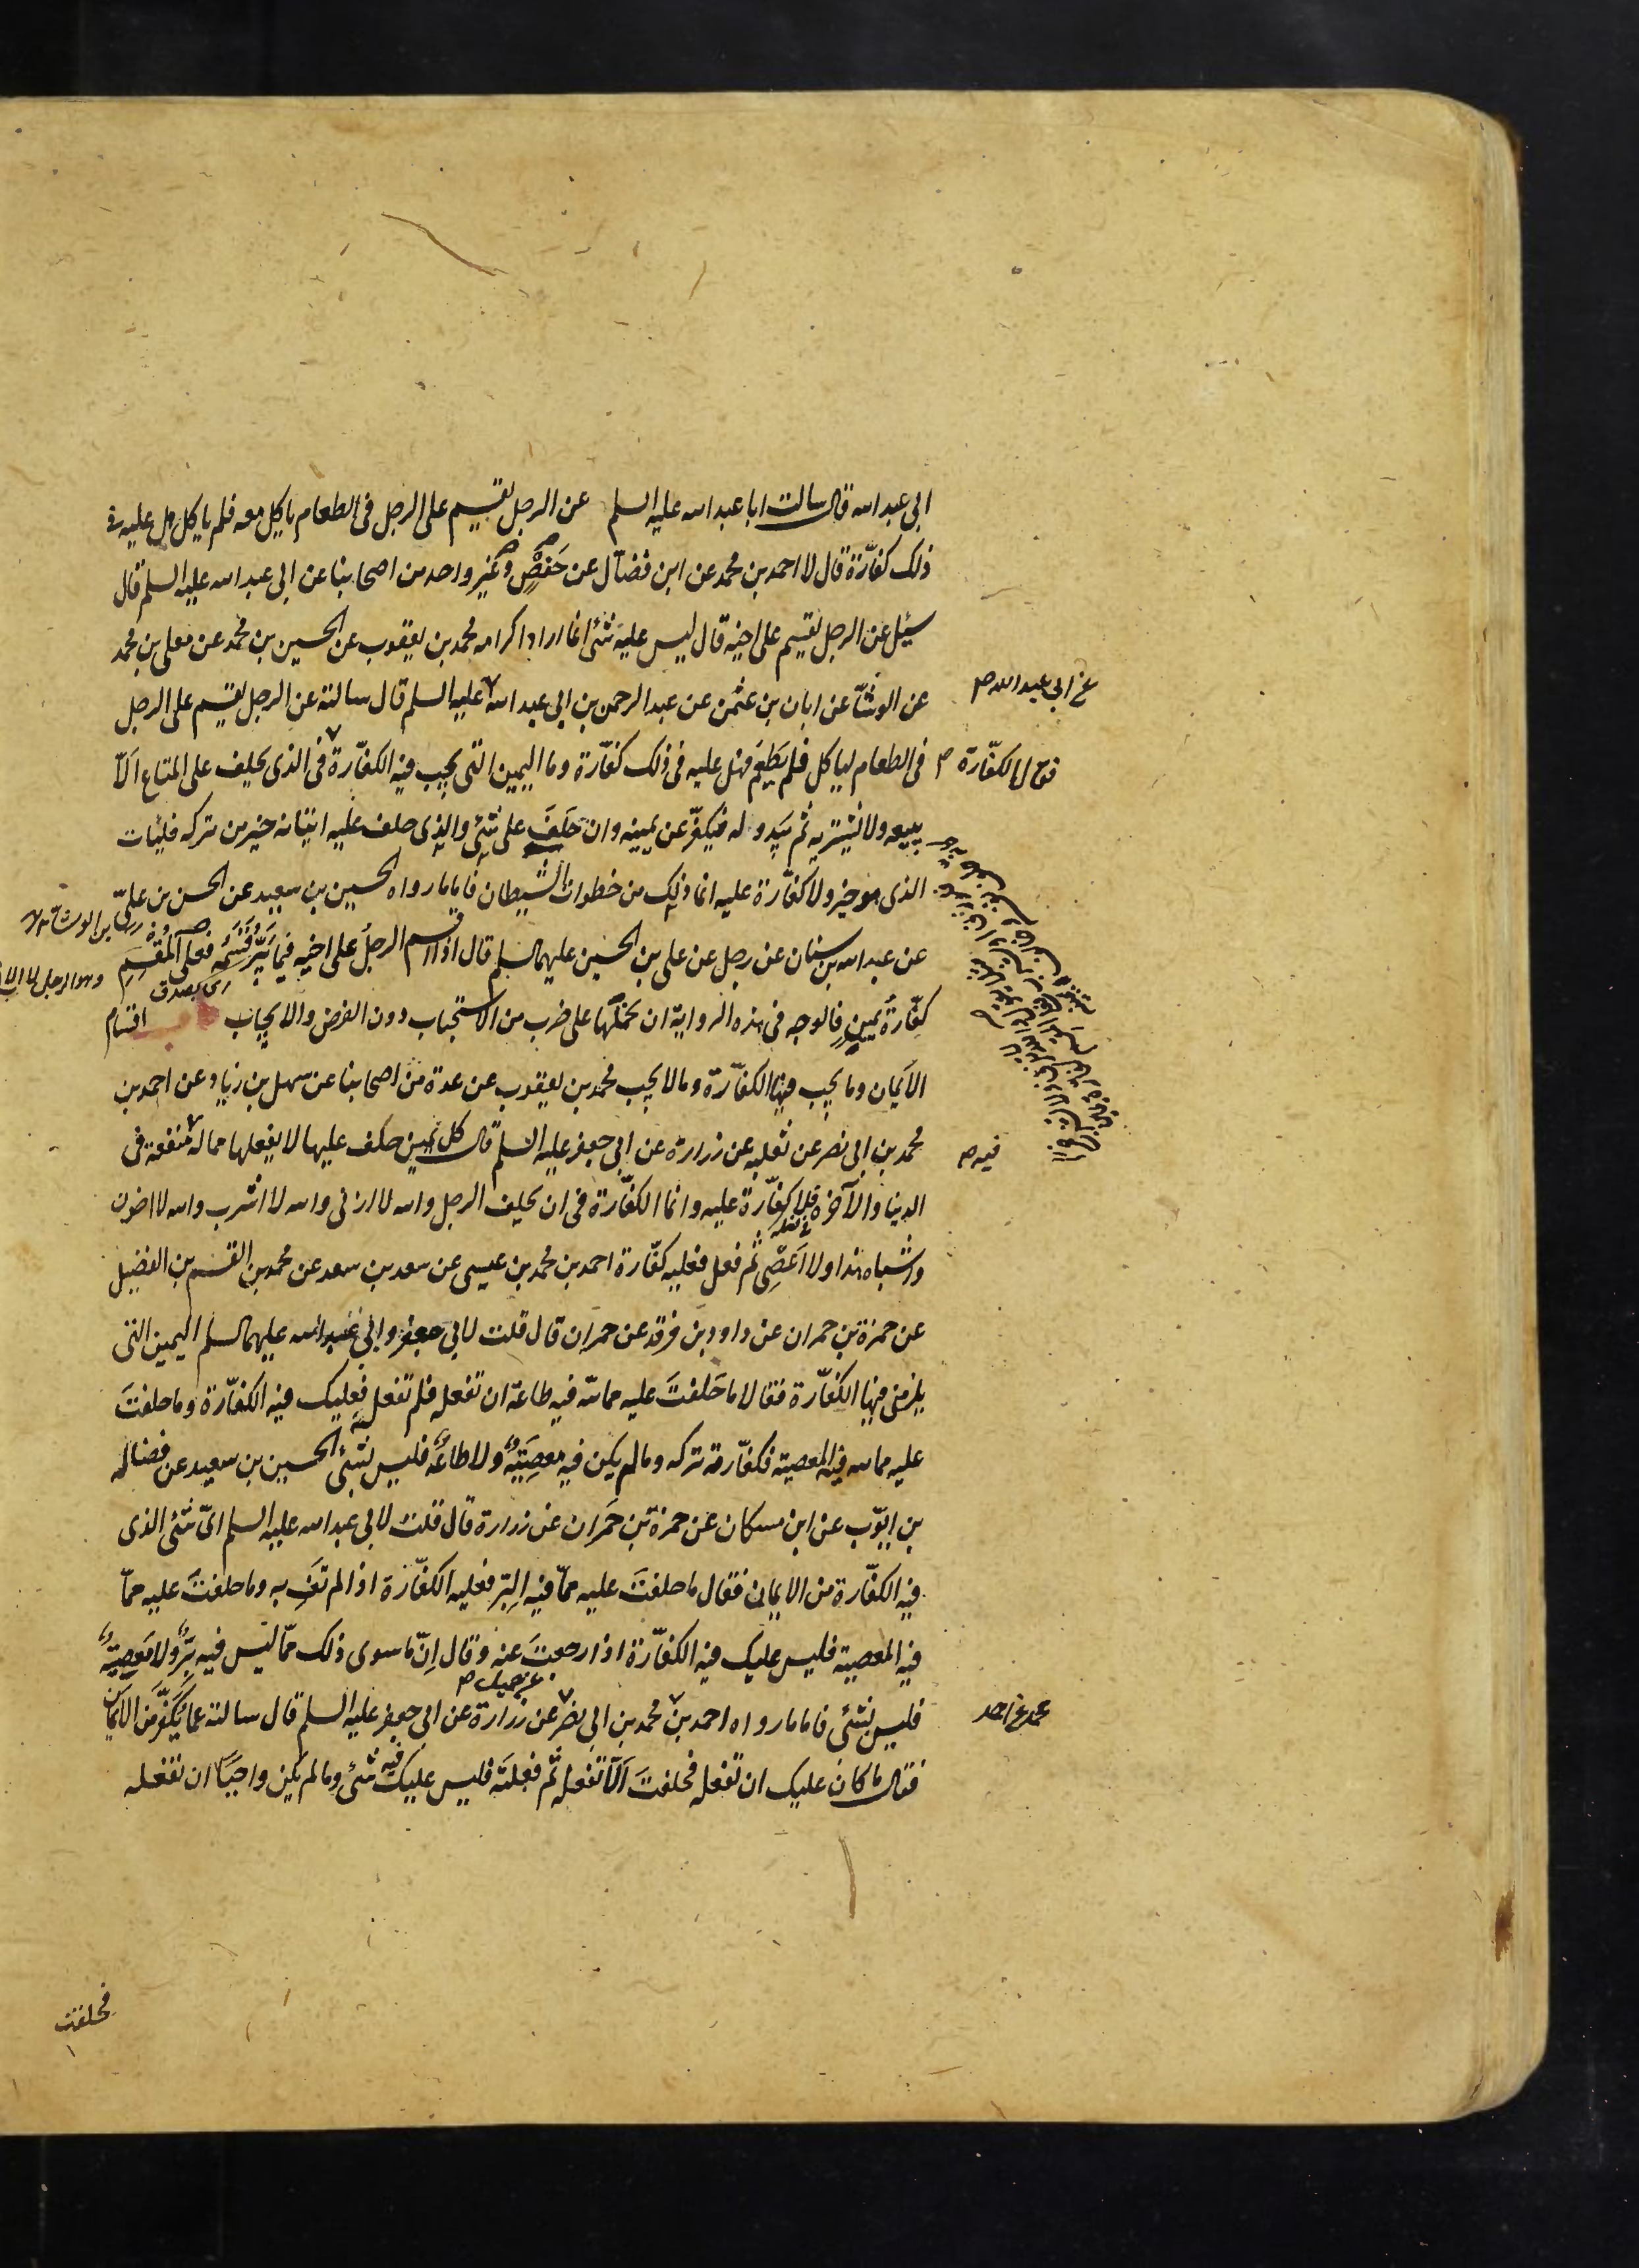 ابى عبد الله قال سالت ابا عبد الله عليه السلم عن الرجل يقسم على الرجل فى الطعام ياكل معه فلم ياكل هل عليه فى
ذلك كفّارة قال لا احمد بن محمد عن ابن فضّال عن حَفصٍ وغير واحد من اصحابنا عن ابى عبد الله عليه السلم قال
سئل عن الرجل يقسم على اخيه قال ليس عليه شئ انما اراد اكرامه محمد بن يعقوب عن الحسين بن محمد عن معلى بن محمد
عن الوشّا عن ابان بن عثمن عن عبد الرحمن بن ابى عبد الله عليه السلم قال سالته عن الرجل يقسم على الرجل
عن ابي عبد الله
فى الطعام لياكل فلم يَطعَم فهل عليه فى ذلك كفّارة وما اليمين التى يجب فيه الكفّارة فى الذى يحلف على المتاع اَلّا
الكفّارة
يبيعه ولا يشتريه ثم يَبدو له فيكفّر عن يمينه وان حَلَفَ على شئ والذى حلف عليه اتيانه خير من تركه فليات
الذى هو خير ولا كفّارة عليه انما ذلك من خطوات الشيطان فاما ما رواه الحسين بن سعيد عن الحسن بن علىّ
عن عبد الله بن سنان عن رجل عن على بن الحسين عليهما السلم قال اذا اقسم الرجلُ على اخيه فلم يَبَرّ قَسَمَه فعلى المُقسِمِ
كفّارةُ يمينٍ فالوجه فى هذه الرواية ان نحملها على ضرب من الاستحباب دون الفرض والايجاب اقسام
الاَيمان وما يجب فيها الكفّارة وما لا يجب محمد بن يعقوب عن عدة من اصحابنا عن سهل بن زياد عن احمد بن
محمد بن ابى نصر عن ثعلبه عن زرارة عن ابى جعفر عليه السلم قال كل يمين حلف عليها لا يفعلها مما له منفعة فى
فيه
الدنيا والآخرة فلا كفّارة عليه وانما الكفّارة فى ان يحلف الرجل والله لا ازنى والله لا اشرب والله لا اخون
واشباه هذا ولا اَعصى ثم فعل فعليه كفّارة احمد بن محمد بن عيسى عن سعد بن سعد عن محمد بن القسم بن الفضيل
عن حمزة بن حمران عن داود بن فرقد عن حمران قال قلت لابى جعفر وابى عبد الله عليهما السلم اليمين التى
يلزمنى فيها الكفّارة فقالا ما حَلفتَ عليه مما لله فيه طاعة ان تفعله فلم تفعله فعليك فيه الكفّارة وما حلفتَ
عليه مما لله فيه المعصية فكفّارته تركه وما لم يكن فيه معصِيَةٌ ولا طاعة فليس بشئ الحسين بن سعيد عن فضاله
بن ايّوب عن ابن مسكان عن حمزة بن حَمران عن زرارة قال قلت لابى عبد الله عليه السلم اىّ شئ الذى
فيه الكفّارة من الايمان فقال ما حلفتَ عليه ممّا فيه البِرّ فعليه الكفّارة اذا لم تَفِ به وما حلفتَ عليه ممّا
فيه المعصية فليس عليك فيه الكفّارة اذا رجعتَ عنه وقال اِنّ ما سوى ذلك ممّا ليس فيه بِرٌّ ولا مَعصِيَةٌ
عن جميل
فليس بشئ فاما ما رواه احمد بن محمد بن ابى نصر عن زرارة عن ابى جعفر عليه السلم قال سالته عما يُكَفَّر من الايمان
فقال ما كان عليك ان تفعله فحلفتَ اَلّا تفعله ثم فعلتَه فليس عليك فيه شئ وما لم يكن واجبًا ان تفعله
فحلفت